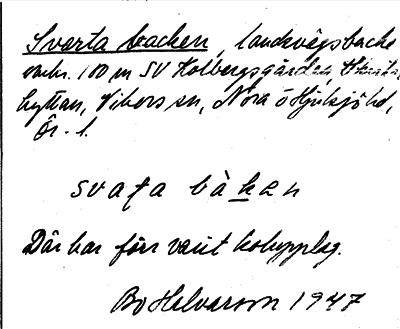 Svarta backen, landsvägsbacke
omkr. 100 m SV Kolbergsgården,
hyttan, Vikers sn, Nora o Hjulsjö hd,
Ör. l.
svaṭa bàḵen
Där har förr varit kolupplag.
Bo Halvarson 1947